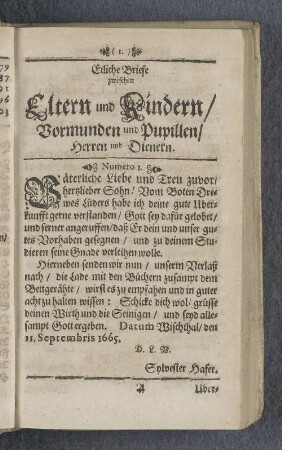 ( 1. )
Etliche Briefe
zwischen
Eltern und Kindern/
Vormunden und Pupillen/
Herren und Dienern.
Numero 1.
Väterliche Liebe und Treu zuvor/
hertzlieber Sohn/ Vom Boten Dre-
wes Lüders habe ich deine gute Uber-
kunfft gerne verstanden/ Gott sey dafür gelobet/
und ferner angeruffen/ daß Er dein und unser gu-
tes Vorhaben gesegnen/ und zu deinem Stu-
dieren seine Gnade verleihen wolle.
Hierneben senden wir nun/ unserm Verlaß
nach/ die Lade mit den Büchern zusampt dem
Bettgeräthe/ wirst es zu empfahen und in guter
acht zu halten wissen: Schicke dich wol/ grüsse
deinen Wirth und die Seinigen/ und seyd alle-
sampt Gott ergeben. Datum Wischthal/ den
11. Septembris 1665.
D. L. V.
Sylvester Hafer.
A Uber-
79
87
91
96
01
03